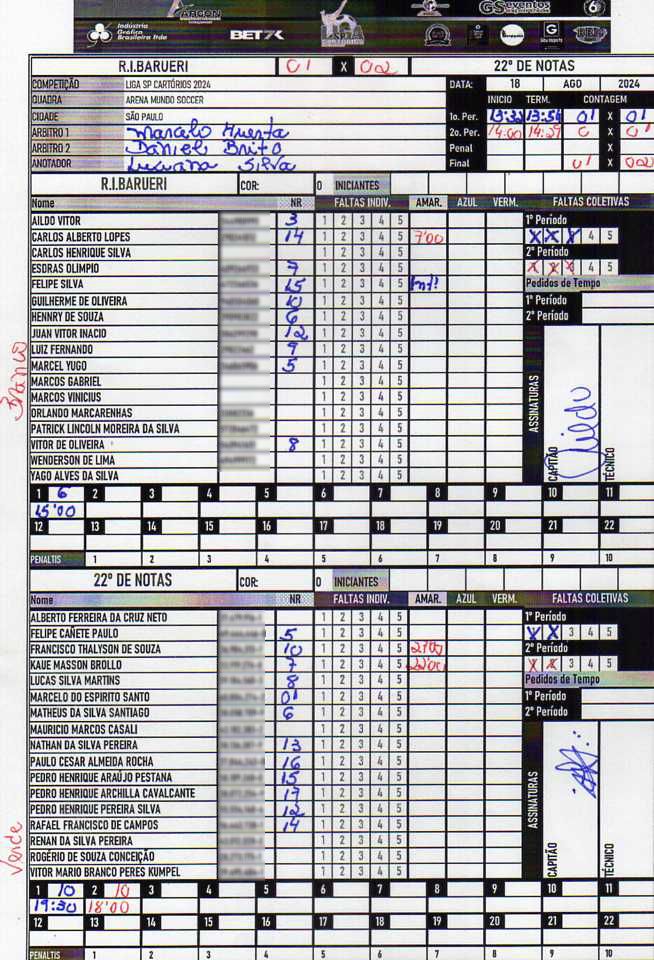 ARGON
GSeventos
6
Indústria
Gráfica
Brasileira ltda
BET7K
LIGA
R.I.BARUERI 01 X 02 22º DE NOTAS
COMPETIÇÃO LIGA SP CARTÓRIOS 2024 DATA: 18 AGO 2024
QUADRA ARENA MUNDO SOCCER INICIO TERM. CONTAGEM
CIDADE SÃO PAULO 1o. Per. 13:32 13:54 01 X 01
ARBITRO 1 Marcelo Huerta 2o. Per. 14:00 14:29 0 X 01
ARBITRO 2 Daniel Brito Penal X
ANOTADOR Luciana Silva Final 01 X 02
R.I.BARUERI COR: 0 INICIANTES
Nome NR FALTAS INDIV. AMAR. AZUL VERM. FALTAS COLETIVAS
AILDO VITOR 3 1 2 3 4 5 1º Período
CARLOS ALBERTO LOPES 14 1 2 3 4 5 7'00 X X X 4 5
CARLOS HENRIQUE SILVA 1 2 3 4 5 2º Período
ESDRAS OLIMPIO 7 1 2 3 4 5 X X X 4 5
FELIPE SILVA 15 1 2 3 4 5 Int! Pedidos de Tempo
GUILHERME DE OLIVEIRA 10 1 2 3 4 5 1º Período
HENNRY DE SOUZA 6 1 2 3 4 5 2º Período
JUAN VITOR INACIO 12 1 2 3 4 5
LUIZ FERNANDO 9 1 2 3 4 5
MARCEL YUGO 5 1 2 3 4 5
MARCOS GABRIEL 1 2 3 4 5
MARCOS VINICIUS 1 2 3 4 5
ORLANDO MARCARENHAS 1 2 3 4 5
PATRICK LINCOLN MOREIRA DA SILVA 1 2 3 4 5
VITOR DE OLIVEIRA 8 1 2 3 4 5
WENDERSON DE LIMA 1 2 3 4 5
YAGO ALVES DA SILVA 1 2 3 4 5
Branco
ASSINATURAS
CAPITÃO Aildo
TÉCNICO
1 6 2 3 4 5 6 7 8 9 10 11
15'00
12 13 14 15 16 17 18 19 20 21 22
PENALTIS 1 2 3 4 5 6 7 8 9 10
22º DE NOTAS COR: 0 INICIANTES
Nome NR FALTAS INDIV. AMAR. AZUL VERM. FALTAS COLETIVAS
ALBERTO FERREIRA DA CRUZ NETO 1 2 3 4 5 1º Período
FELIPE CAÑETE PAULO 5 1 2 3 4 5 X X 3 4 5
FRANCISCO THALYSON DE SOUZA 10 1 2 3 4 5 21'00 2º Período
KAUE MASSON BROLLO 7 1 2 3 4 5 22'00 X X 3 4 5
LUCAS SILVA MARTINS 8 1 2 3 4 5 Pedidos de Tempo
MARCELO DO ESPIRITO SANTO 01 1 2 3 4 5 1º Período
MATHEUS DA SILVA SANTIAGO 6 1 2 3 4 5 2º Período
MAURICIO MARCOS CASALI 1 2 3 4 5
NATHAN DA SILVA PEREIRA 13 1 2 3 4 5
PAULO CESAR ALMEIDA ROCHA 16 1 2 3 4 5
PEDRO HENRIQUE ARAÚJO PESTANA 15 1 2 3 4 5
PEDRO HENRIQUE ARCHILLA CAVALCANTE 17 1 2 3 4 5
PEDRO HENRIQUE PEREIRA SILVA 12 1 2 3 4 5
RAFAEL FRANCISCO DE CAMPOS 14 1 2 3 4 5
RENAN DA SILVA PEREIRA 1 2 3 4 5
ROGÉRIO DE SOUZA CONCEIÇÃO 1 2 3 4 5
VITOR MARIO BRANCO PERES KUMPEL 1 2 3 4 5
Verde
ASSINATURAS
CAPITÃO
TÉCNICO
1 10 2 10 3 4 5 6 7 8 9 10 11
19:30 18'00
12 13 14 15 16 17 18 19 20 21 22
PENALTIS 1 2 3 4 5 6 7 8 9 10